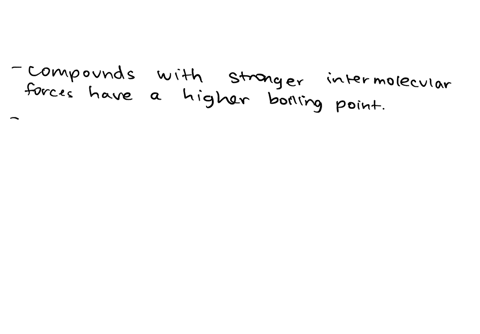 - compounds with stronger intermolecular
forces have a higher boiling point.
-